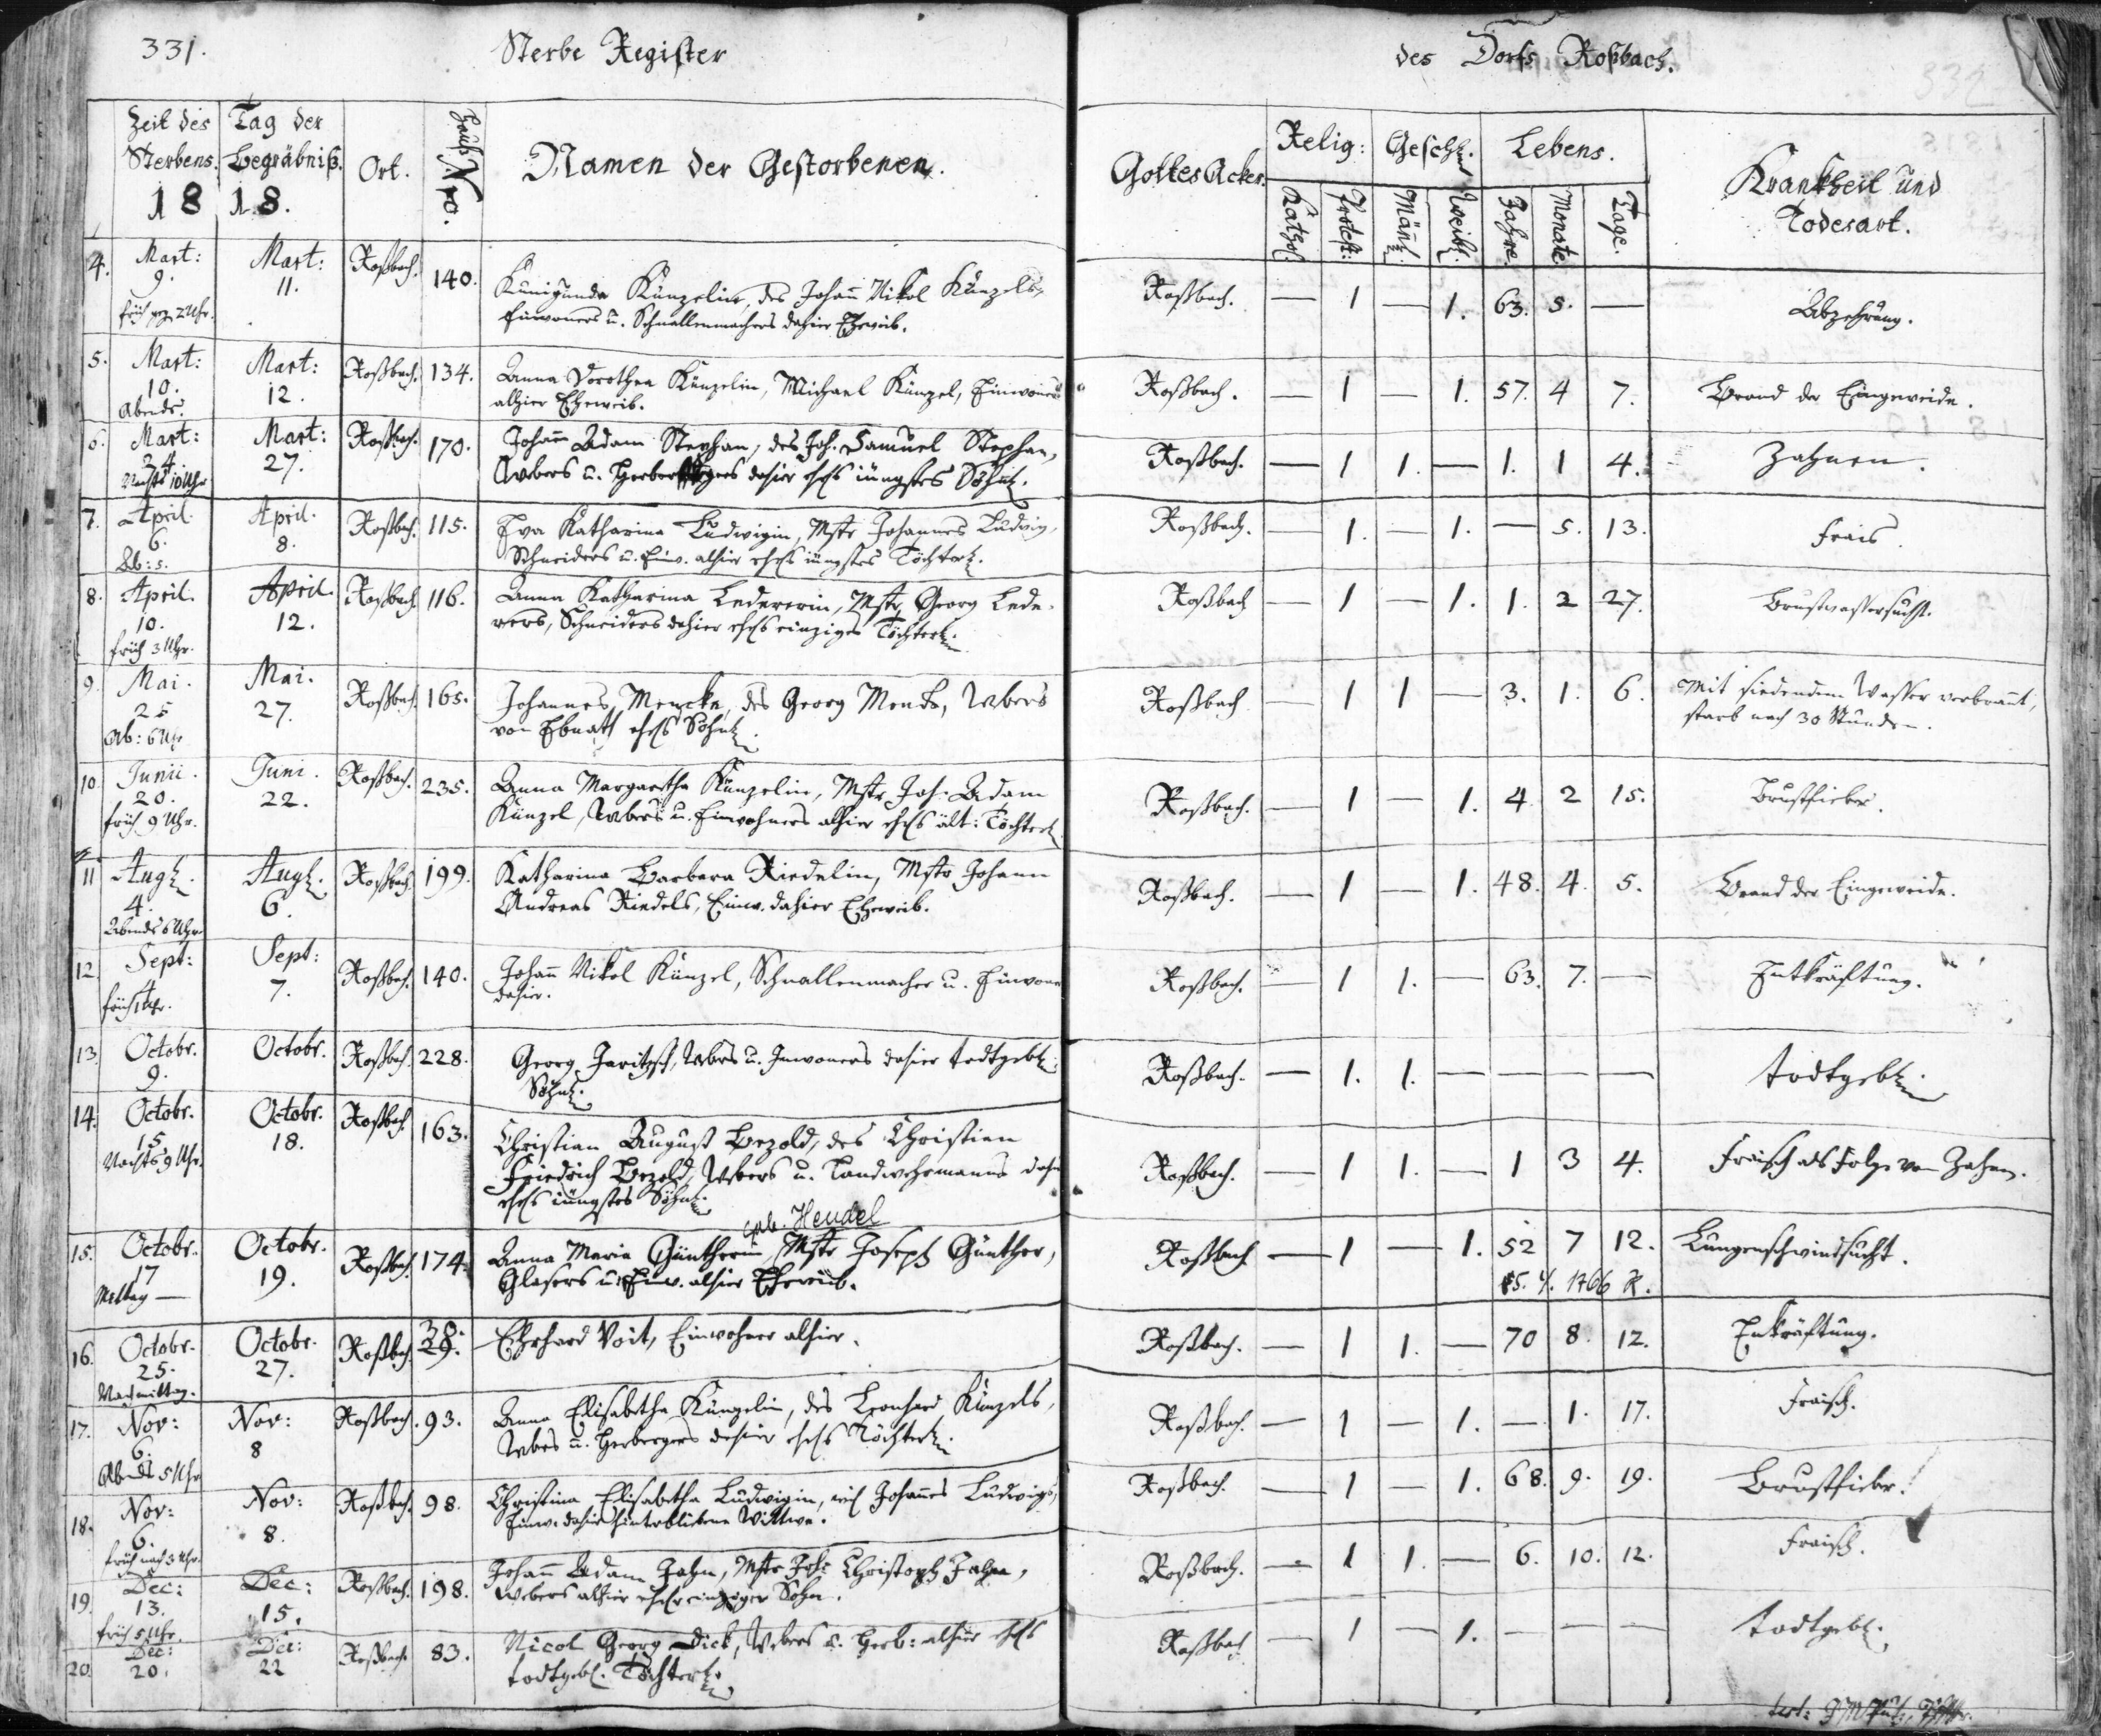 331.
Sterbe Register
des Dorfs Roßbach.
332
Zeit des Sterbens. Tag der Begräbniß. Ort. Hauß Nro. Namen der Gestorbenen. GottesAcker. Relig: Geschl. Lebens. Krankheit und Todesart.
1818.
Kathol. Protest: Mänl. Weibl. Jahre. Monate. Tage.
4. Mart: 9. früh 2 Uhr. Mart: 11. Roßbach. 140. Kunigunda Künzelin, des Johañ Nikol Künzels,
Einwoners u. Schnallenmachers dahier Eheweib.
Roßbach. — 1 — 1. 63. 5. — Abzehrung.
5. Mart: 10. Abends. Mart: 12. Roßbach. 134. Anna Dorothea Künzelin, Michael Künzel, Einwoners
alhier Eheweib.
Roßbach. — 1 — 1. 57. 4 7. Brand der Eingeweide.
6. Mart: 24. Nachts 10 Uhr Mart: 27. Roßbach. 170. Johañ Adam Stephan, des Joh. Samuel Stephan,
Webers u. dahier ehels jüngstes Söhnl.
Roßbach. — 1 1. — 1. 1 4. Zahnen.
7. April. 6. Ab: 5. April. 8. Roßbach. 115. Eva Katharina Ludwigin, Mstr Johannes Ludwig,
Schneiders u. Einw. alhier ehels jüngstes Töchterl.
Roßbach. — 1. — 1. — 5. 13. Frais.
8. April. 10. früh 3 Uhr. April. 12. Roßbach. 116. Anna Katharina Ledererin, Mstr Georg Lede-
rers, Schneiders dahier ehels einziges Töchterl.
Roßbach — 1 — 1. 1. 2 27. Brustwassersucht.
9. Mai. 25 Ab: 6 Uhr Mai. 27. Roßbach. 165. Johannes Mencke, des Georg Menck, Webers
von Ebnath ehels Söhnl.
Roßbach — 1 1 — 3. 1. 6. Mit siedendem Wasser verbrannt,
starb nach 30 Stunden.
10. Junii. 20. früh 9 Uhr. Juni. 22. Roßbach. 235. Anna Margaretha Künzelin, Mstr Joh. Adam
Künzel, Webers u. Einwohners alhier ehels ält: Töchterl.
Roßbach. — 1 — 1. 4 2 15. Brustfieber.
11 Augl. 4. Abends 6 Uhr. Augl. 6. Roßbach. 199. Katharina Barbara Riedelin, Mstr Johann
Andreas Riedels, Einw. dahier Eheweib.
Roßbach. — 1 — 1. 48. 4. 5. Brand der Eingeweide.
12. Sept: 4. früh Uhr. Sept: 7. Roßbach. 140. Johañ Nikol Künzel, Schnallenmacher u. Einwoner
dahier.
Roßbach. — 1 1. — 63. 7. — Entkräftung.
13. Octobr. 9. Octobr. Roßbach. 228. Georg Jaritzsch, Webers u. Inwoners dahier todtgebl.
Söhnl.
Roßbach. — 1. 1. — — — — todtgebl.
14. Octobr. 15. Nachts 9 Uhr. Octobr. 18. Roßbach 163. Christian August Bezold, des Christian
Friedrich Bezold, Webers u. Landwehrmanns dahier
ehels jüngstes Söhnl.
Roßbach. — 1 1. — 1 3 4. Fraisch als Folge von Zahnen.
geb. Hendel
15. Octobr. 17 Mittag — Octobr. 19. Roßbach. 174. Anna Maria Güntherin, Mstr Joseph Günther,
Glasers u. Einw. alhier Eheweib.
Roßbach — 1 — 1. 52 7 12. Lungenschwindsucht.
15. 4. 1766 R.
16. Octobr. 25. Nachmittag. Octobr. 27. Roßbach. 38. 29. Ehrhard Voit, Einwohner alhier.
Roßbach. — 1 1. — 70 8. 12. Enkräftung.
17. Nov: 6. Abends 5 Uhr Nov: 8 Roßbach. 93. Anna Elisabetha Künzelin, des Leonhard Künzels,
Webers u. Herbergers dahier ehels Töchterl.
Roßbach. — 1 — 1. — 1. 17. Fraisch.
18. Nov: 6. früh nach 3 Uhr. Nov: 8. Roßbach. 98. Christina Elisabetha Ludwigin, Johannes Ludwigs,
Einw. dahier hinterblibene Wittwe.
Roßbach. — 1 — 1. 68. 9. 19. Brustfieber.
19. Dec: 13. früh 5 Uhr. Dec: 15. Roßbach. 198. Johañ Adam Jahn, Mstr Joh: Christoph Jahn,
Webers alhier eheleinziger Sohn.
Roßbach. — 1 1. — 6. 10. 12. Fraisch.
20. Dec: 20. Dec: 22 Roßbach. 83. Nicol Georg Dick, Webers u. Herb: alhier ehels
todtgebl. Töchterl.
Roßbach — 1 — 1. — — — todtgebl.